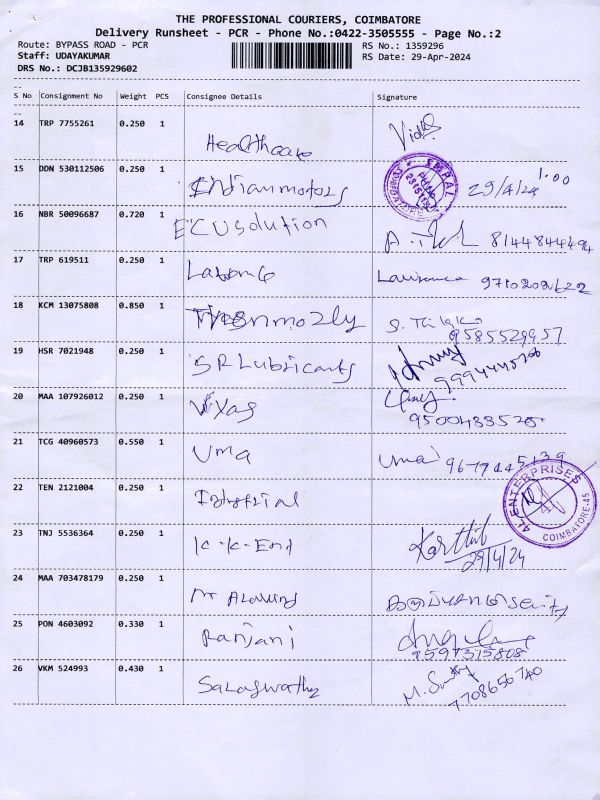 THE PROFESSIONAL COURIERS, COIMBATORE
Delivery Runsheet - PCR - Phone No.:0422-3505555 - Page No.:2
Route: BYPASS ROAD - PCR
RS No.: 1359296
Staff: UDAYAKUMAR
RS Date: 29-Apr-2024
DRS No.: DCJB135929602
S No Consignment No Weight PCS Consignee Details Signature
14 TRP 7755261 0.250 1 Healthcare
15 DDN 530112506 0.250 1 Indian motors 29/4/24 1.00
16 NBR 50096687 0.720 1 ECU Solution
17 TRP 619511 0.250 1
18 KCM 13075808 0.850 1 9585529957
19 HSR 7021948 0.250 1 SR Lubricants
20 MAA 107926012 0.250 1 9500488525
21 TCG 40960573 0.550 1 Uma Uma 9677445139
22 TEN 2121004 0.250 1 AL ENTERPRISES COIMBATORE-45
23 TNJ 5536364 0.250 1 K-K-End Karthik
29/4/24
24 MAA 703478179 0.250 1
25 PON 4603092 0.330 1 Ranjani
9597315808
26 VKM 524993 0.430 1 M.
7708656740